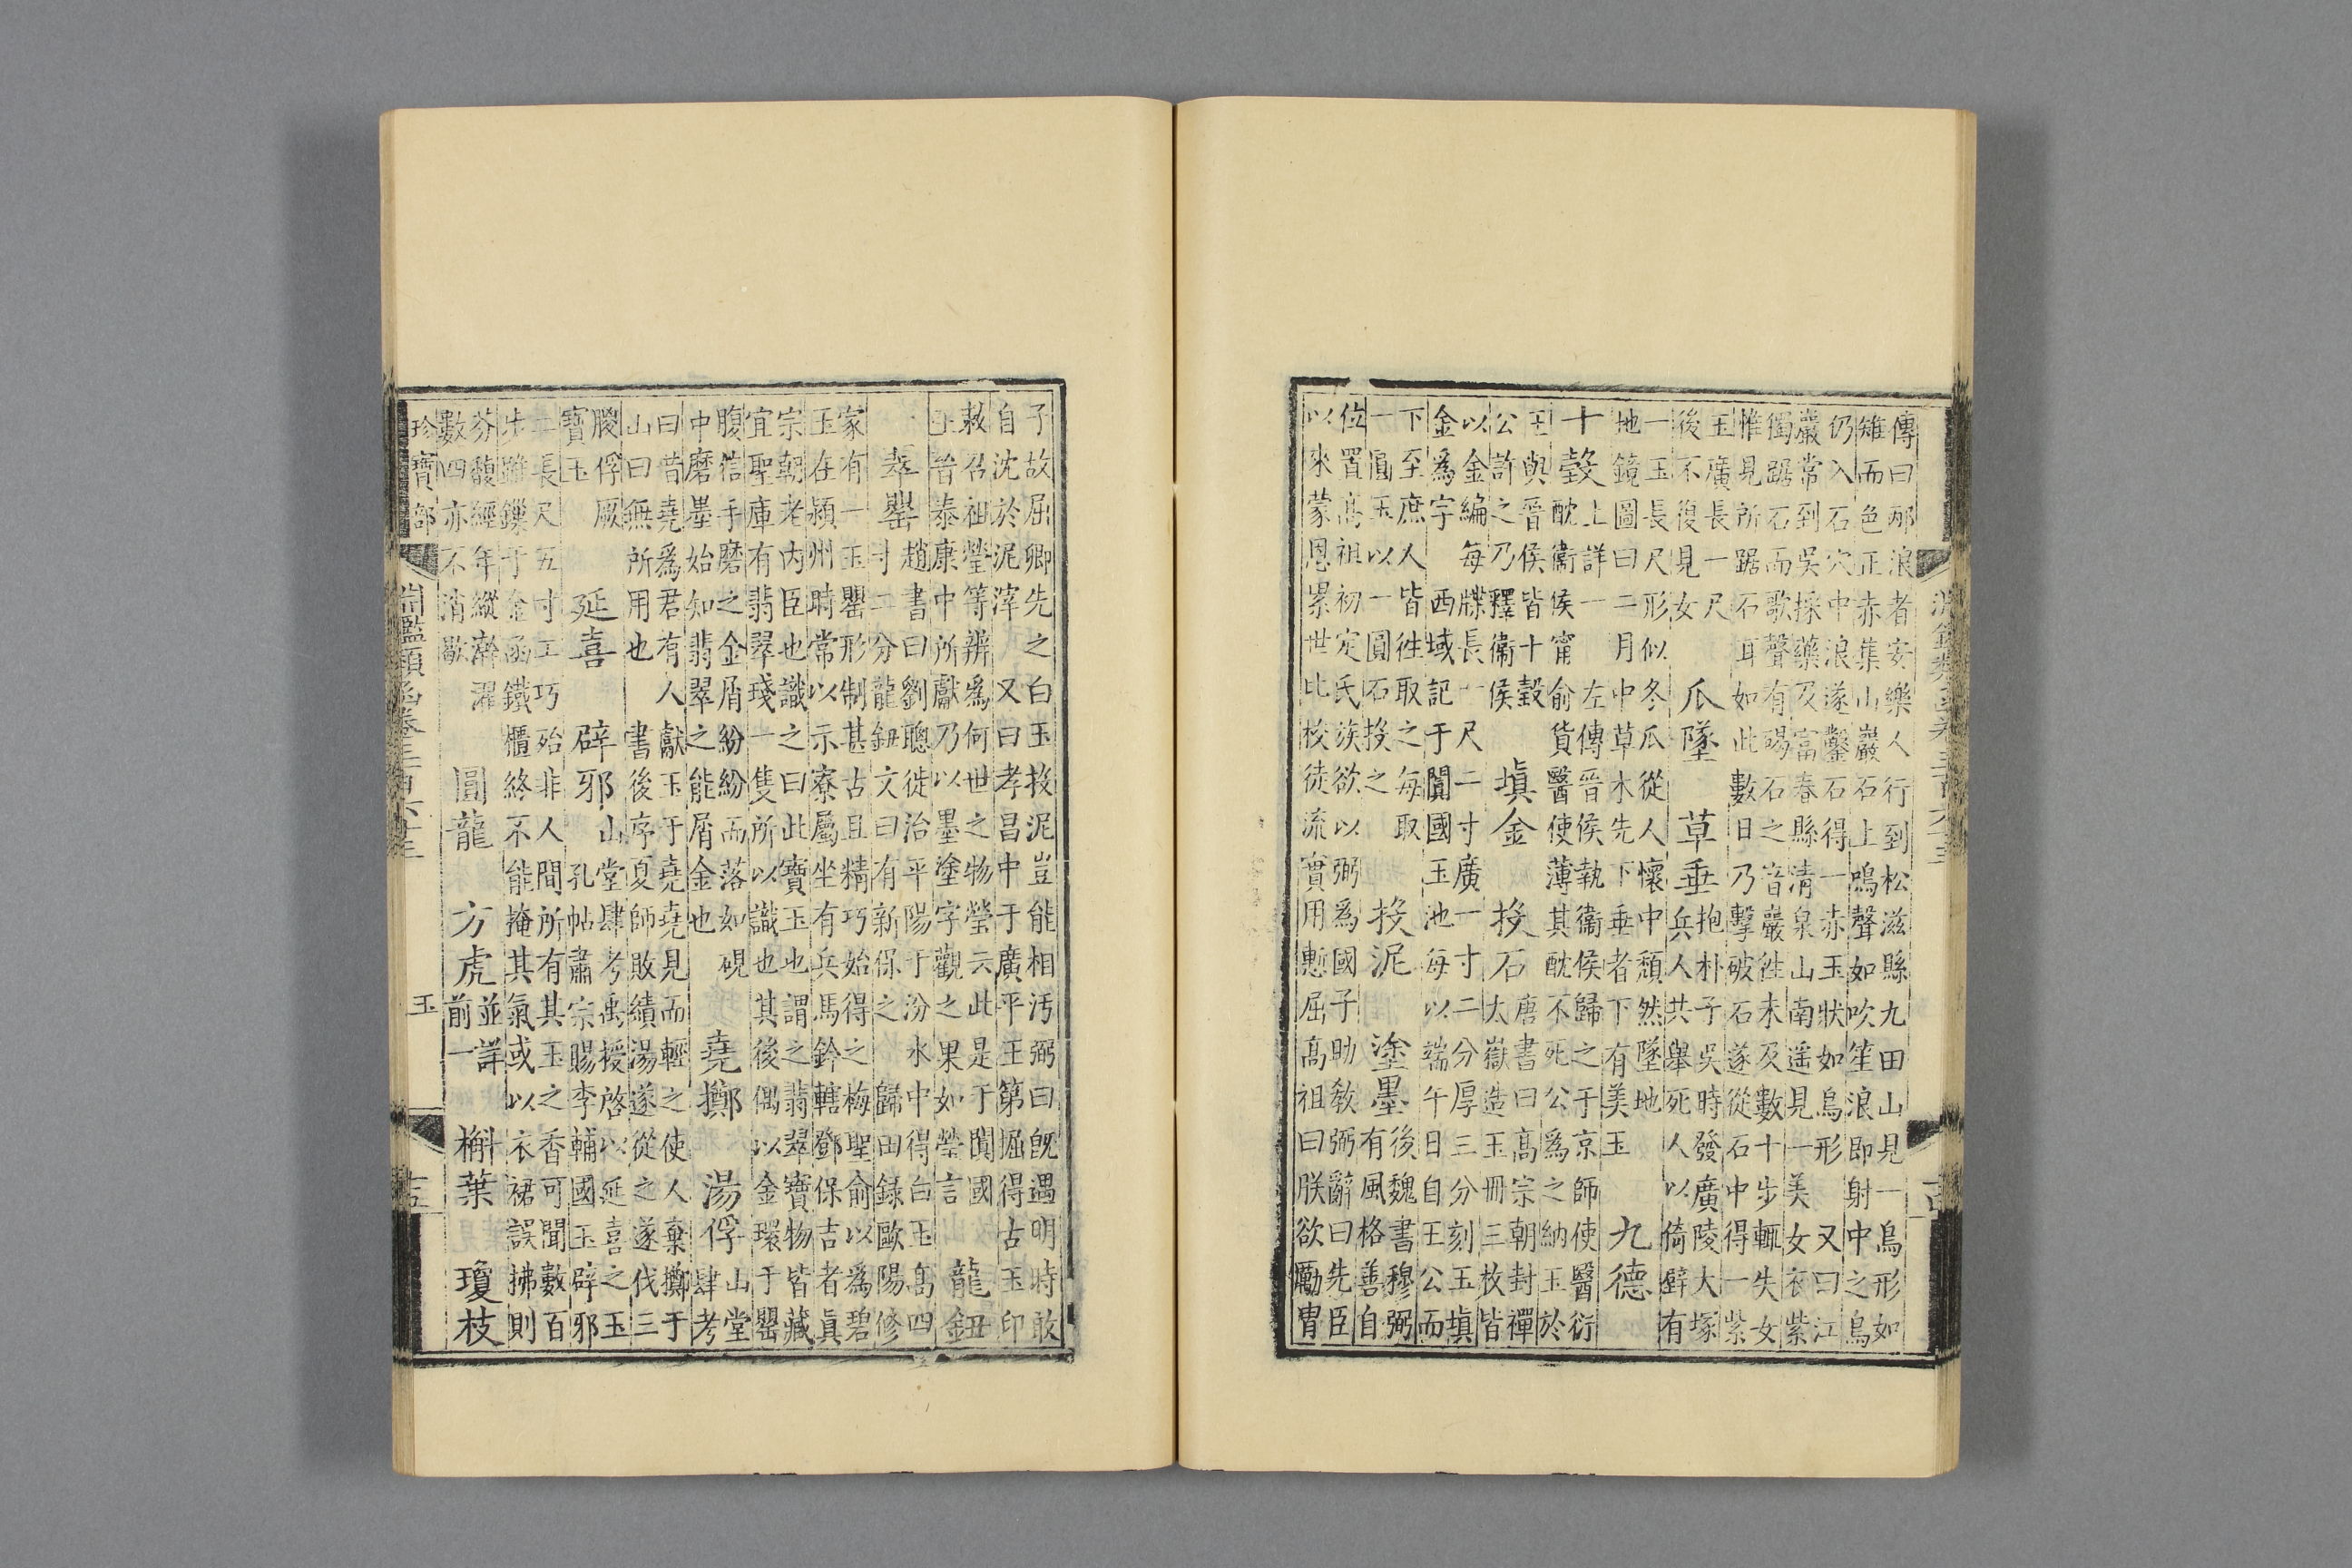 淵鑑類函卷三百六十三
傳曰邴浪者安樂人行到松滋縣九田山見一鳥形如
雉而色正赤集山巖石上鳴聲如吹笙浪即射中之鳥
仍入石穴中浪遂鑿石得一赤玉狀如鳥形　又曰江
巖常到吳採藥及富春縣清泉山南遥見一美女衣紫
獨踞石而歌聲有碣石之音巖徃未及數十步輒失女
惟見所踞石耳如此數日乃擊破石遂從石中得一紫
玉廣長一尺
後不復見女
瓜墜　草垂
抱朴子吳時發廣陵大塚
兵人共舉死人以倚壁有
一玉長尺形似冬瓜從人懷中頹然墜地
地鏡圖曰二月中草木先下垂者下有美玉
九德
十瑴
上詳一　左傳晉侯執衞侯歸之于京師使醫衍
酖衞侯甯俞貨醫使薄其酖不死公爲之納玉於
王與晉侯皆十瑴
公許之乃釋衞侯
塡金　投石
唐書曰高宗朝封禪
太嶽造玉冊三枚皆
以金編每牒長一尺二寸廣一寸二分厚三分刻玉塡
金爲字　西域記于闐國玉池每以端午日自王公而
下至庶人皆徃取之每取
一圓玉以一圓石投之
投泥　塗墨
後魏書穆弼
有風格善自
位置高祖初定氏族欲以弼爲國子助敎弼辭曰先臣
以來蒙恩累世比校徒流實用慙屈高祖曰朕欲勵冑
子故屈卿先之白玉投泥豈能相汚弼曰旣遇明時敢
自沈於泥滓　又曰孝昌中于廣平王第掘得古玉印
敕召祖瑩等辨爲何世之物瑩云此是于闐國
王晉泰康中所獻乃以墨塗字觀之果如瑩言
龍鈕
翠罌
趙書曰劉聰徙治平陽于汾水中得白玉高四
寸二分龍鈕文曰有新保之　歸田錄歐陽修
家有一玉罌形制甚古且精巧始得之梅聖俞以爲碧
玉在潁州時常以示寮屬坐有兵馬鈐轄鄧保吉者眞
宗朝老内臣也識之曰此寶玉也謂之翡翠寶物皆藏
宜聖庫有翡翠琖一隻所以識也其後偶以金環于罌
腹信手磨之金屑紛紛而落如硯
中磨墨始知翡翠之能屑金也
堯擲　湯俘
山堂
肆考
曰昔堯爲君有人獻玉于堯堯見而輕之使人棄擲于
山曰無所用也　書後序夏師敗績湯遂從之遂伐三
朡俘厥
寶玉
延喜　辟邪
山堂肆考禹授啓以延喜之玉
孔帖肅宗賜李輔國玉辟邪
二長尺五寸工巧殆非人間所有其玉之香可聞數百
步雖鏁于金函鐵櫃終不能掩其氣或以衣裾誤拂則
芬馥經年縱澣濯
數四亦不消歇
圓龍　方虎
並詳
前一
槲葉　瓊枝
珍寶部　淵鑑類函卷三百六十三　玉